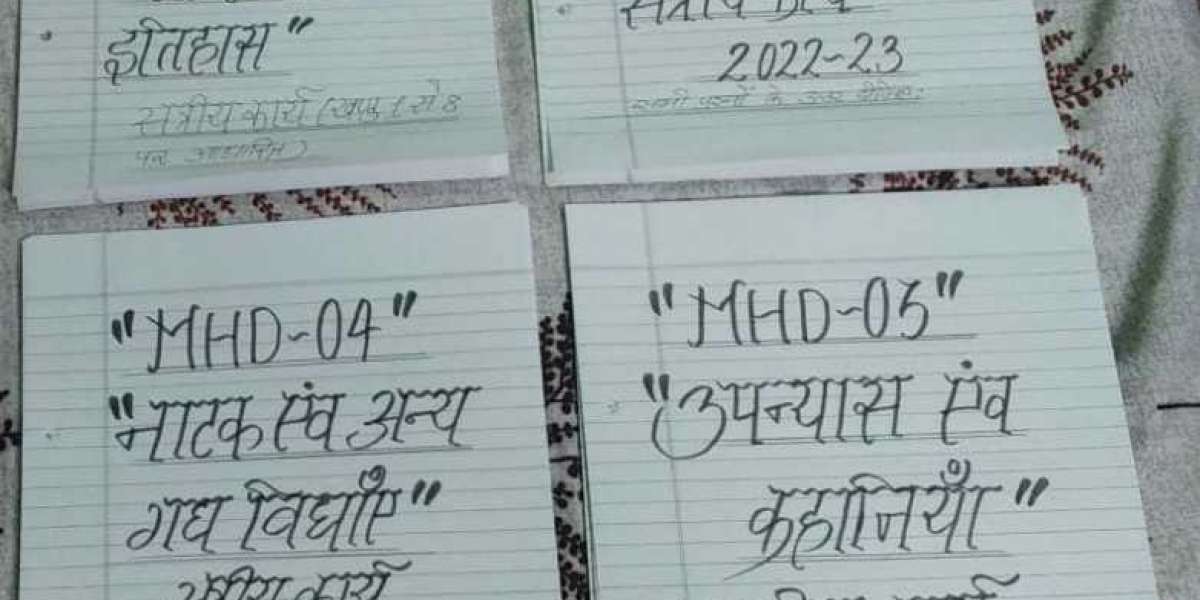 इतिहास"
सत्रीय कार्य (खण्ड 1 से 8
पर आधारित)
सत्रीय कार्य
2022-23
सभी प्रश्नों के उत्तर
"MHD-04"
"नाटक एंव अन्य
गद्य विधाएँ"
सत्रीय कार्य
"MHD-03"
"उपन्यास एंव
कहानियाँ"